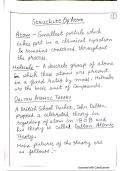 Structure Of Atom
Atom - Smallest particle which
takes part in a chemical equation
& remains conserved throughout
the process.
Molecule - A discrete group of atoms
in which these atoms are present
in a fixed ratio by mass.
are the basic unit of Compounds.
DALTON'S ATOMIC THEORY
A British School Teacher, John Dalton
proposed a theory
regarding of atom in 1808 and
his theory is called Dalton Atomic
Theory.
Main features of the theory are
as follows :-
Scanned with CamScanner